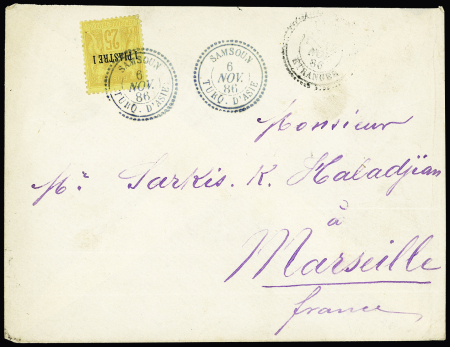 25
1 PIASTRE 1
SAMSOUN
6
NOV.
86
TURQ. D'ASIE
SAMSOUN
6
NOV.
86
TURQ. D'ASIE
86
ETRANGER
Monsieur
Mr. Sarkis. K. Haladjian
à
Marseille
france